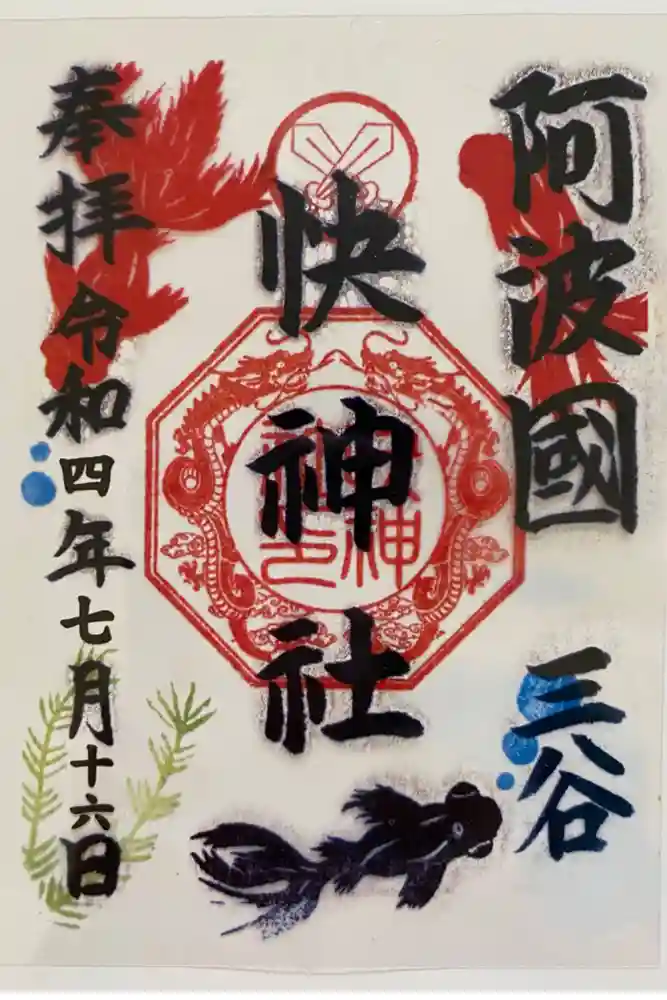 阿波國 三谷
快神社
奉拝 令和四年七月十六日